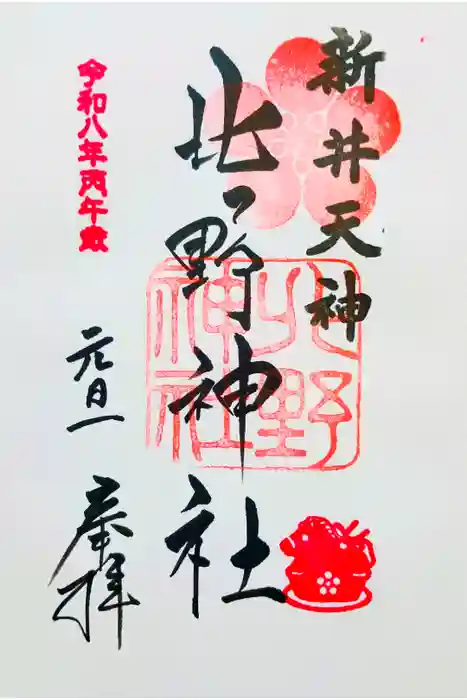 新井天神
北野神社
北野神社
令和八年丙午歳
元旦
奉拝